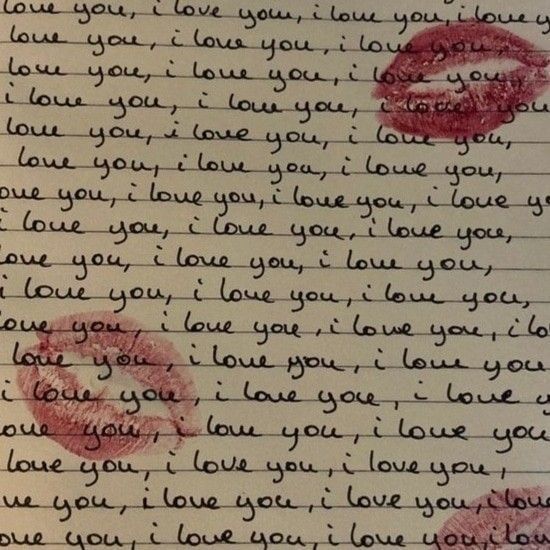 love you, i love you, i love you, i love y
love you, i love you, i love you,
love you, i love you, i love you,
i love you, i love you, i love you
love you, i love you, i love you,
love you, i love you, i love you,
ove you, i love you, i love you, i love yo
i love you, i love you, i love you,
love you, i love you, i love you,
i love you, i love you, i love you,
love you, i love you, i love you, i lo
love you, i love you, i love you
i love you, i love you, i love y
ove you, i love you, i love you
love you, i love you, i love you,
ve you, i love you, i love you, i love
ove you, i love you, i love you, i love